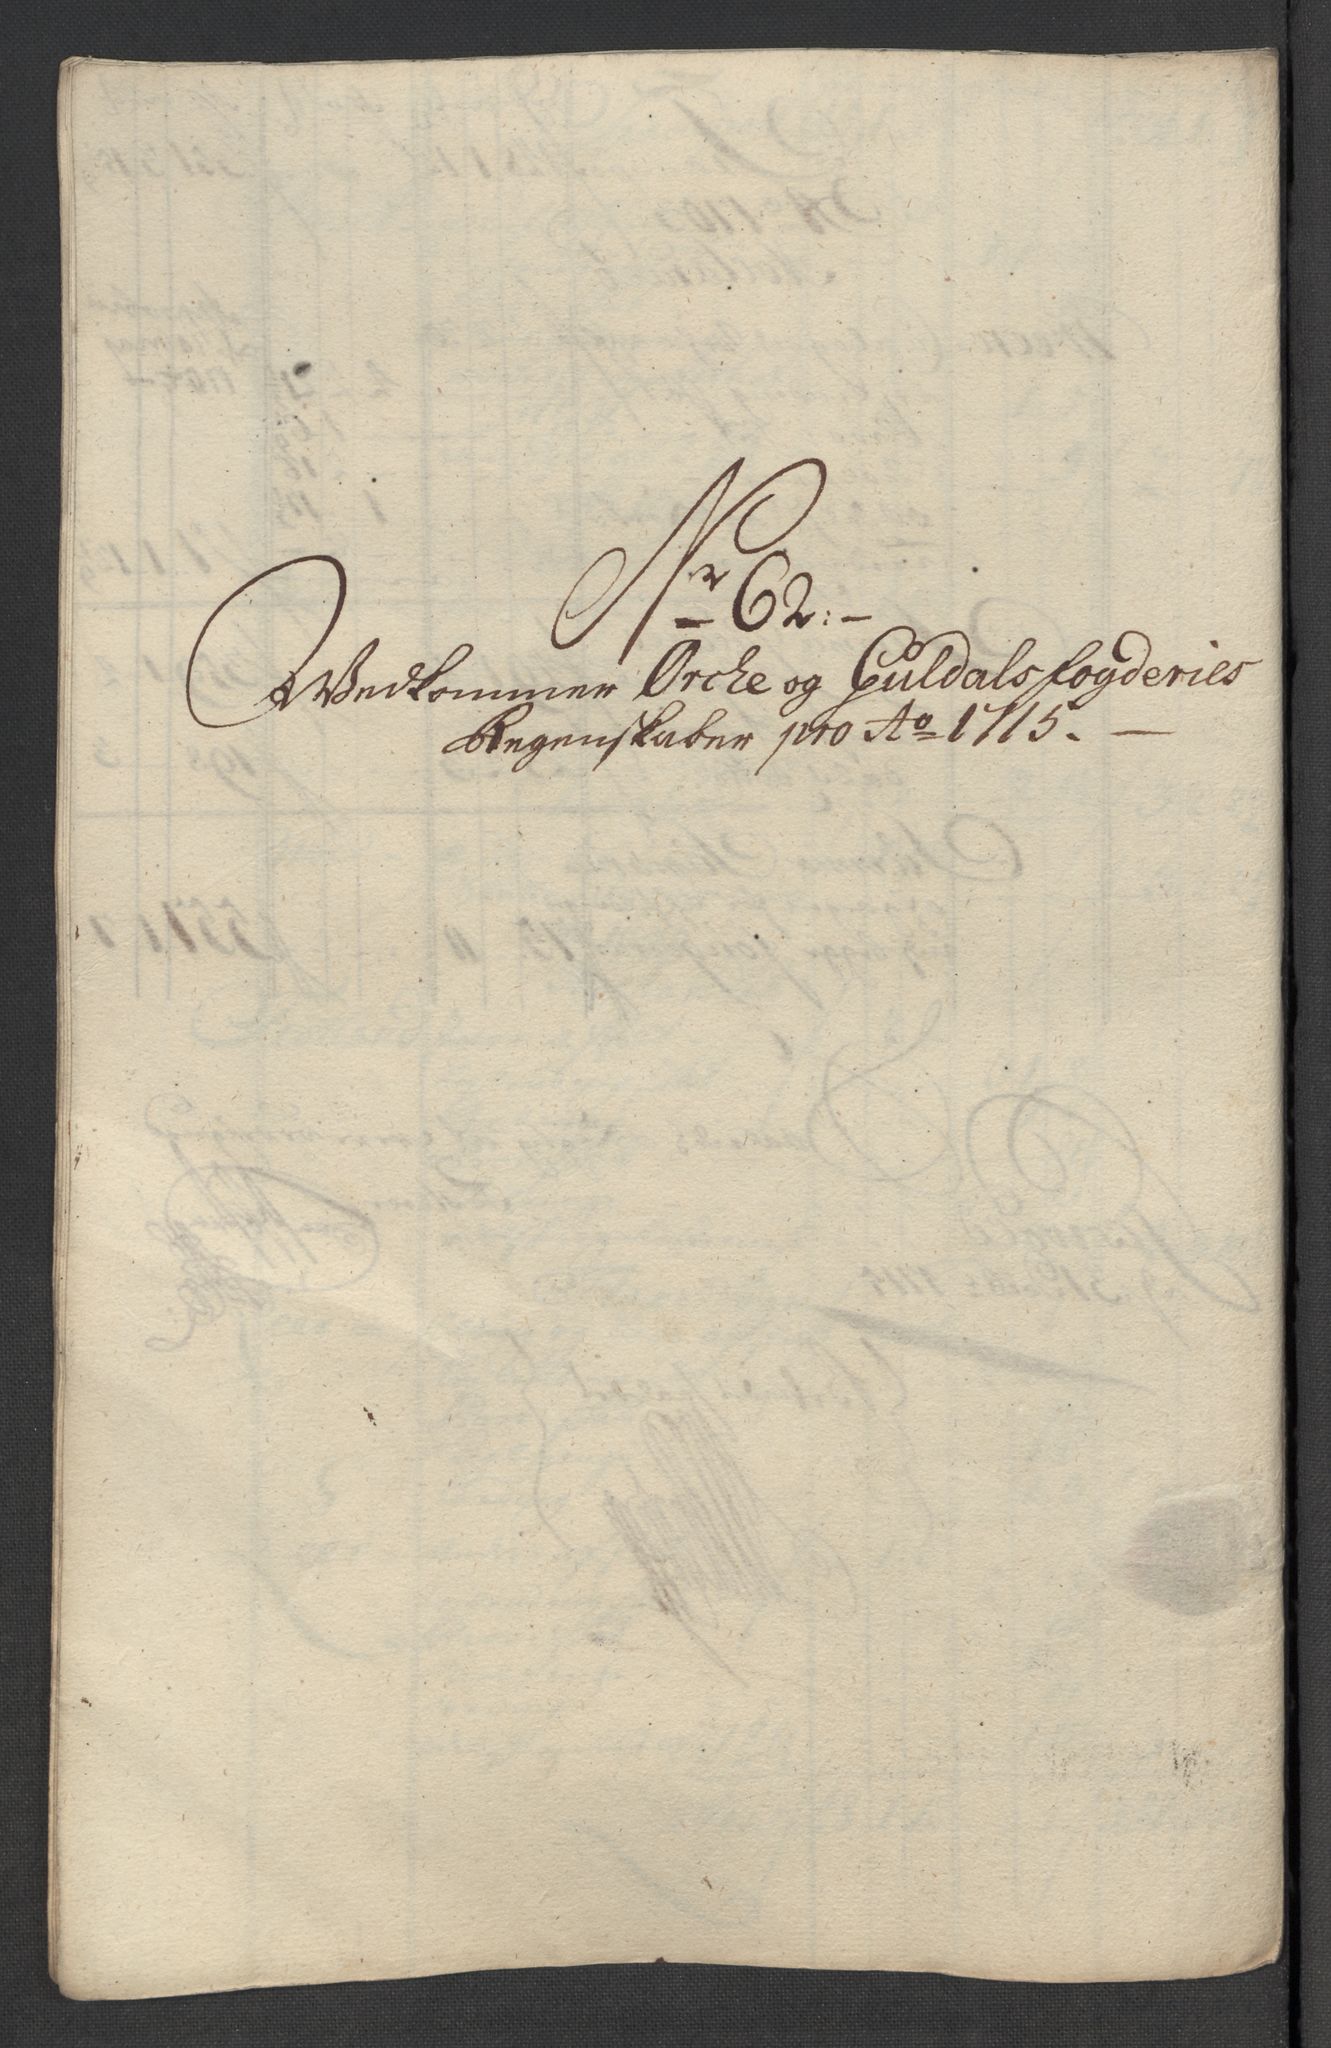 Nr 62:-
Vedkommer Orche og Guldals fogderies
Regenskaber pro Ao 1715. -